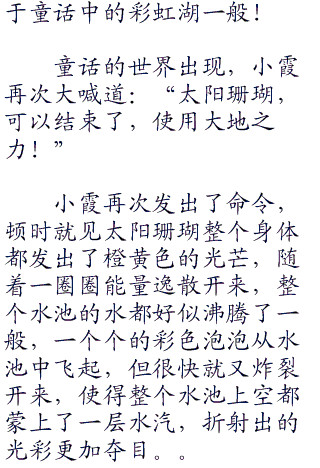 于童话中的彩虹湖一般！
童话的世界出现，小霞
再次大喊道：“太阳珊瑚，
可以结束了，使用大地之
力！”
小霞再次发出了命令，
顿时就见太阳珊瑚整个身体
都发出了橙黄色的光芒，随
着一圈圈能量逸散开来，整
个水池的水都好似沸腾了一
般，一个个的彩色泡泡从水
池中飞起，但很快就又炸裂
开来，使得整个水池上空都
蒙上了一层水汽，折射出的
光彩更加夺目。。